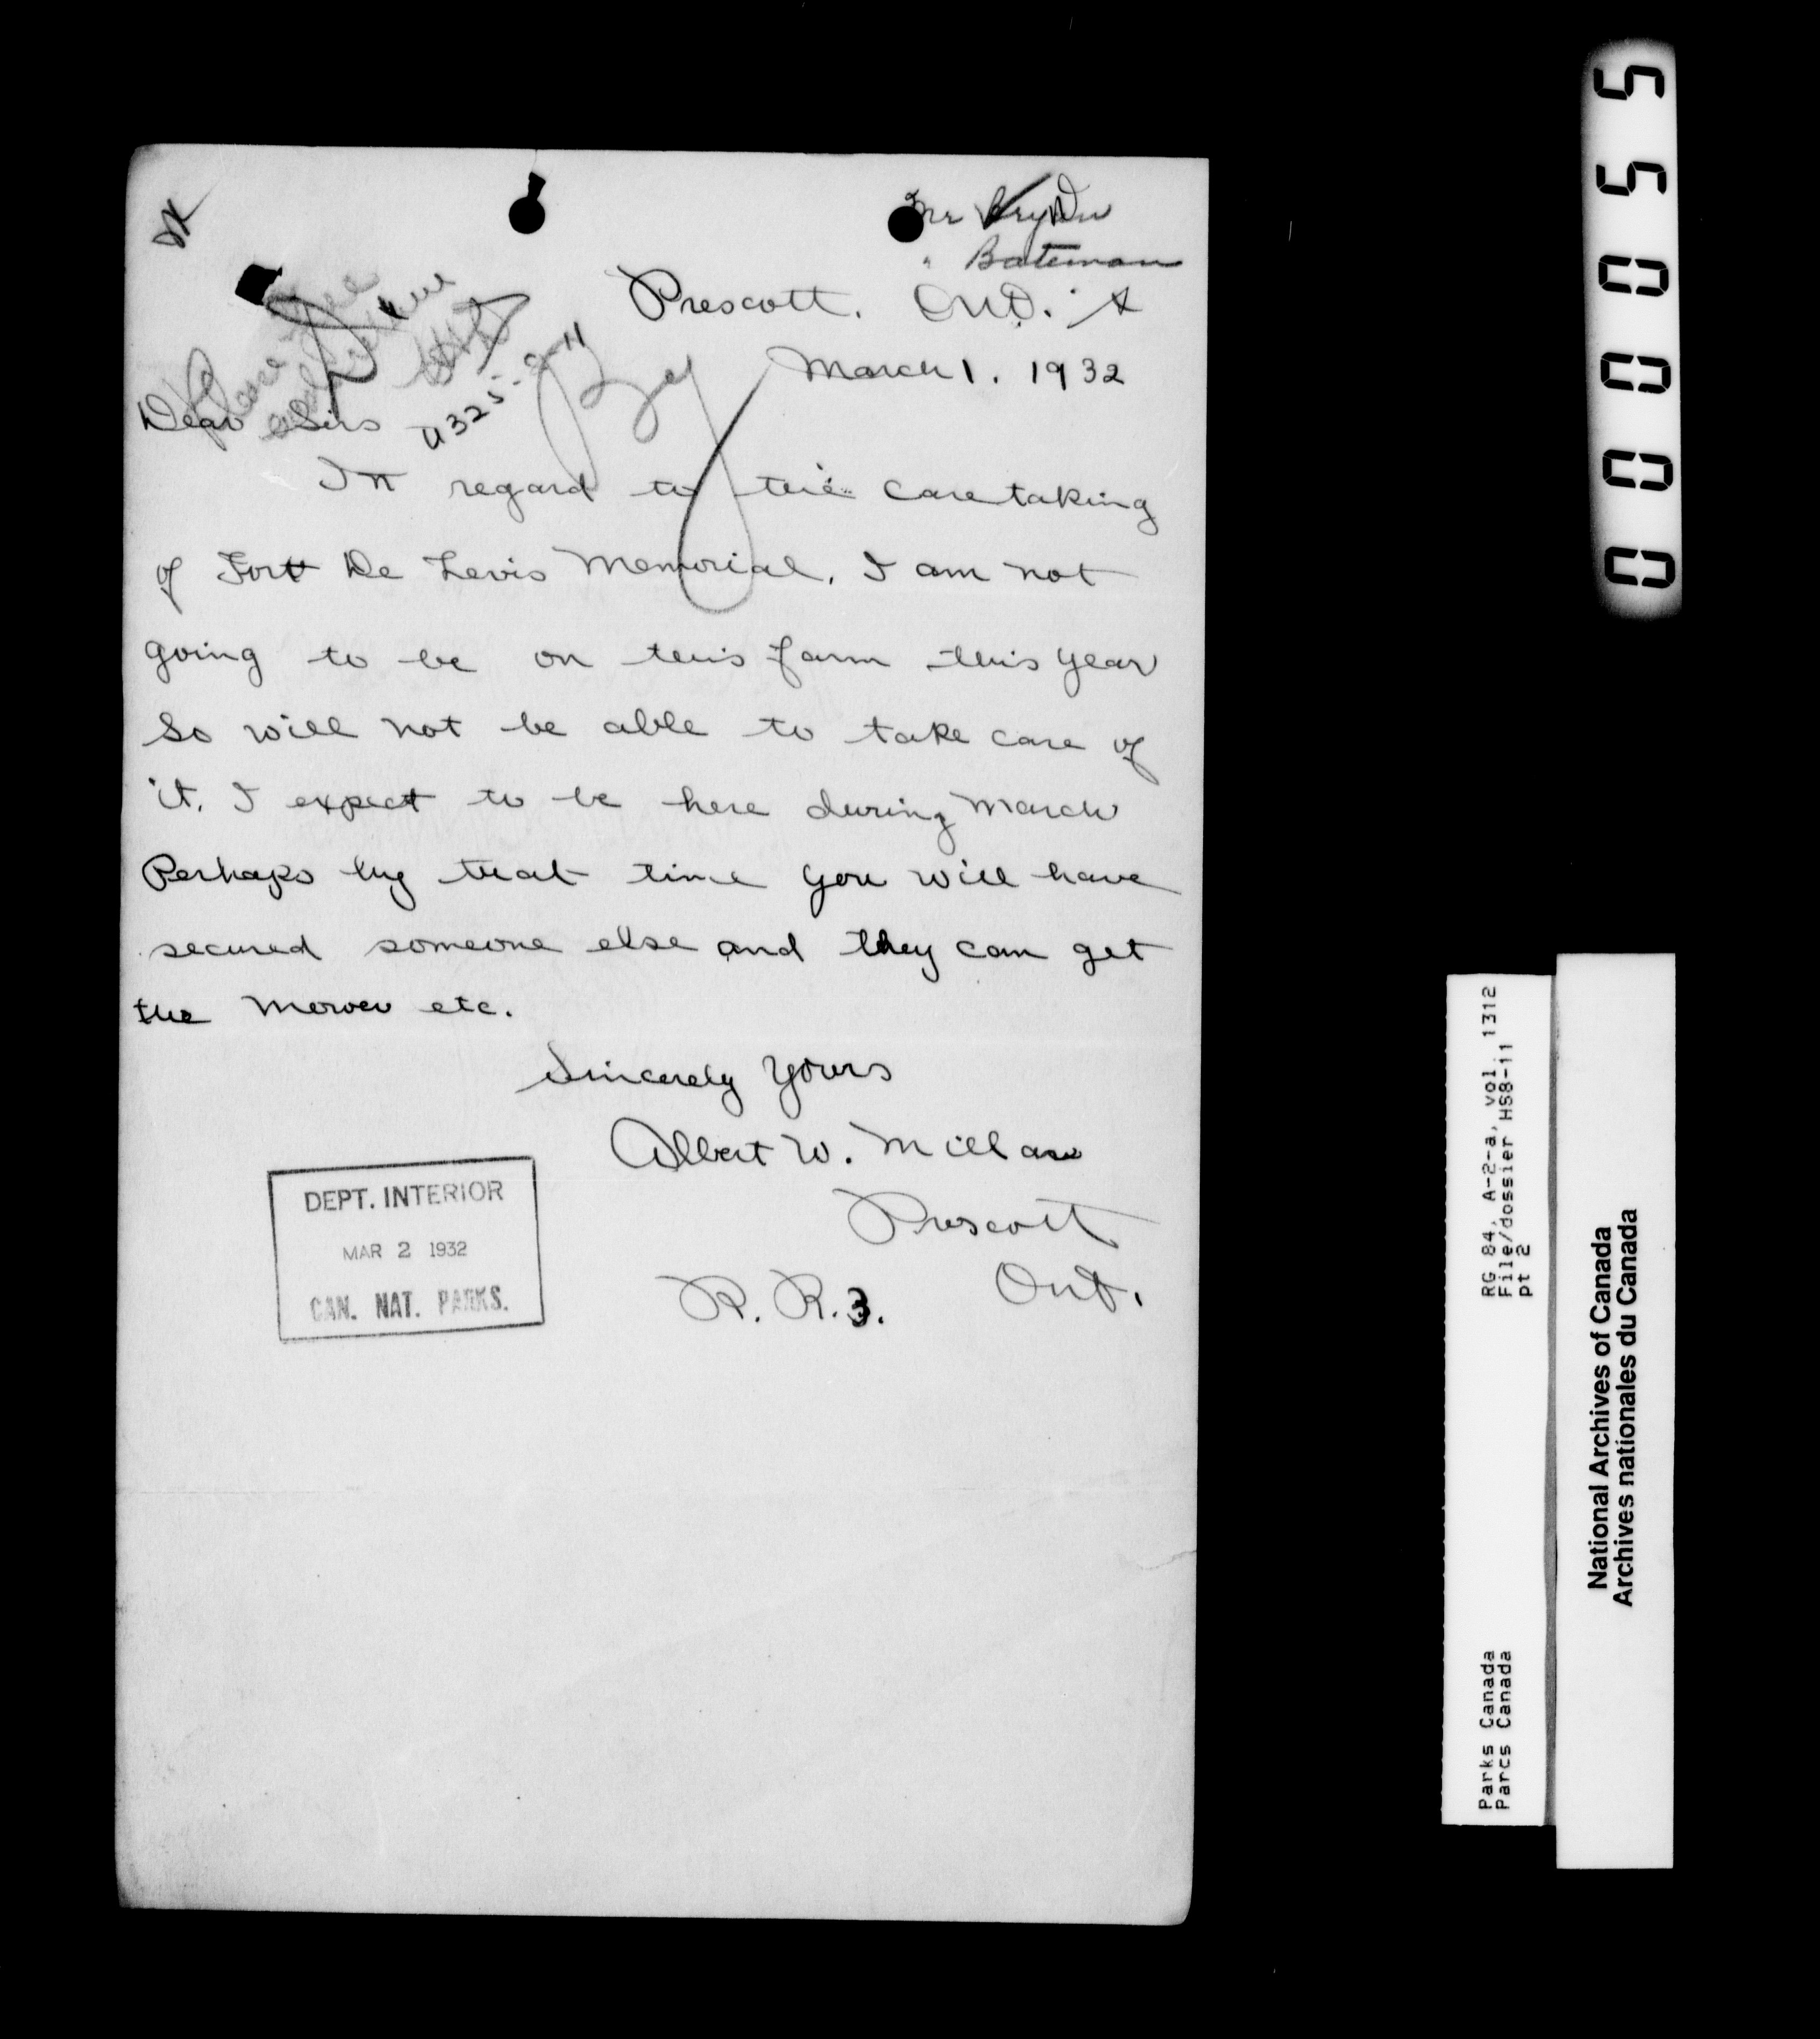 Mr
" Bateman
Prescott. Ont.
March 1. 1932
Please
U325-9-11
Dear Sirs
In regard to the caretaking
of Fort De Levis Memorial. I am not
going to be on this farm this year
So will not be able to take care of
it. I expect to be here during March
Perhaps by that time you will have
secured someone else and they can get
the Mower etc.
Sincerely Yours
Albert W. Millar
Prescott
R. R. 3. Ont.
DEPT. INTERIOR
MAR 2 1932
CAN. NAT. PARKS.
000055
RG 84, A-2-a, vol. 1312
File/dossier HS8-11
pt 2
Parks Canada
Parcs Canada
National Archives of Canada
Archives nationales du Canada